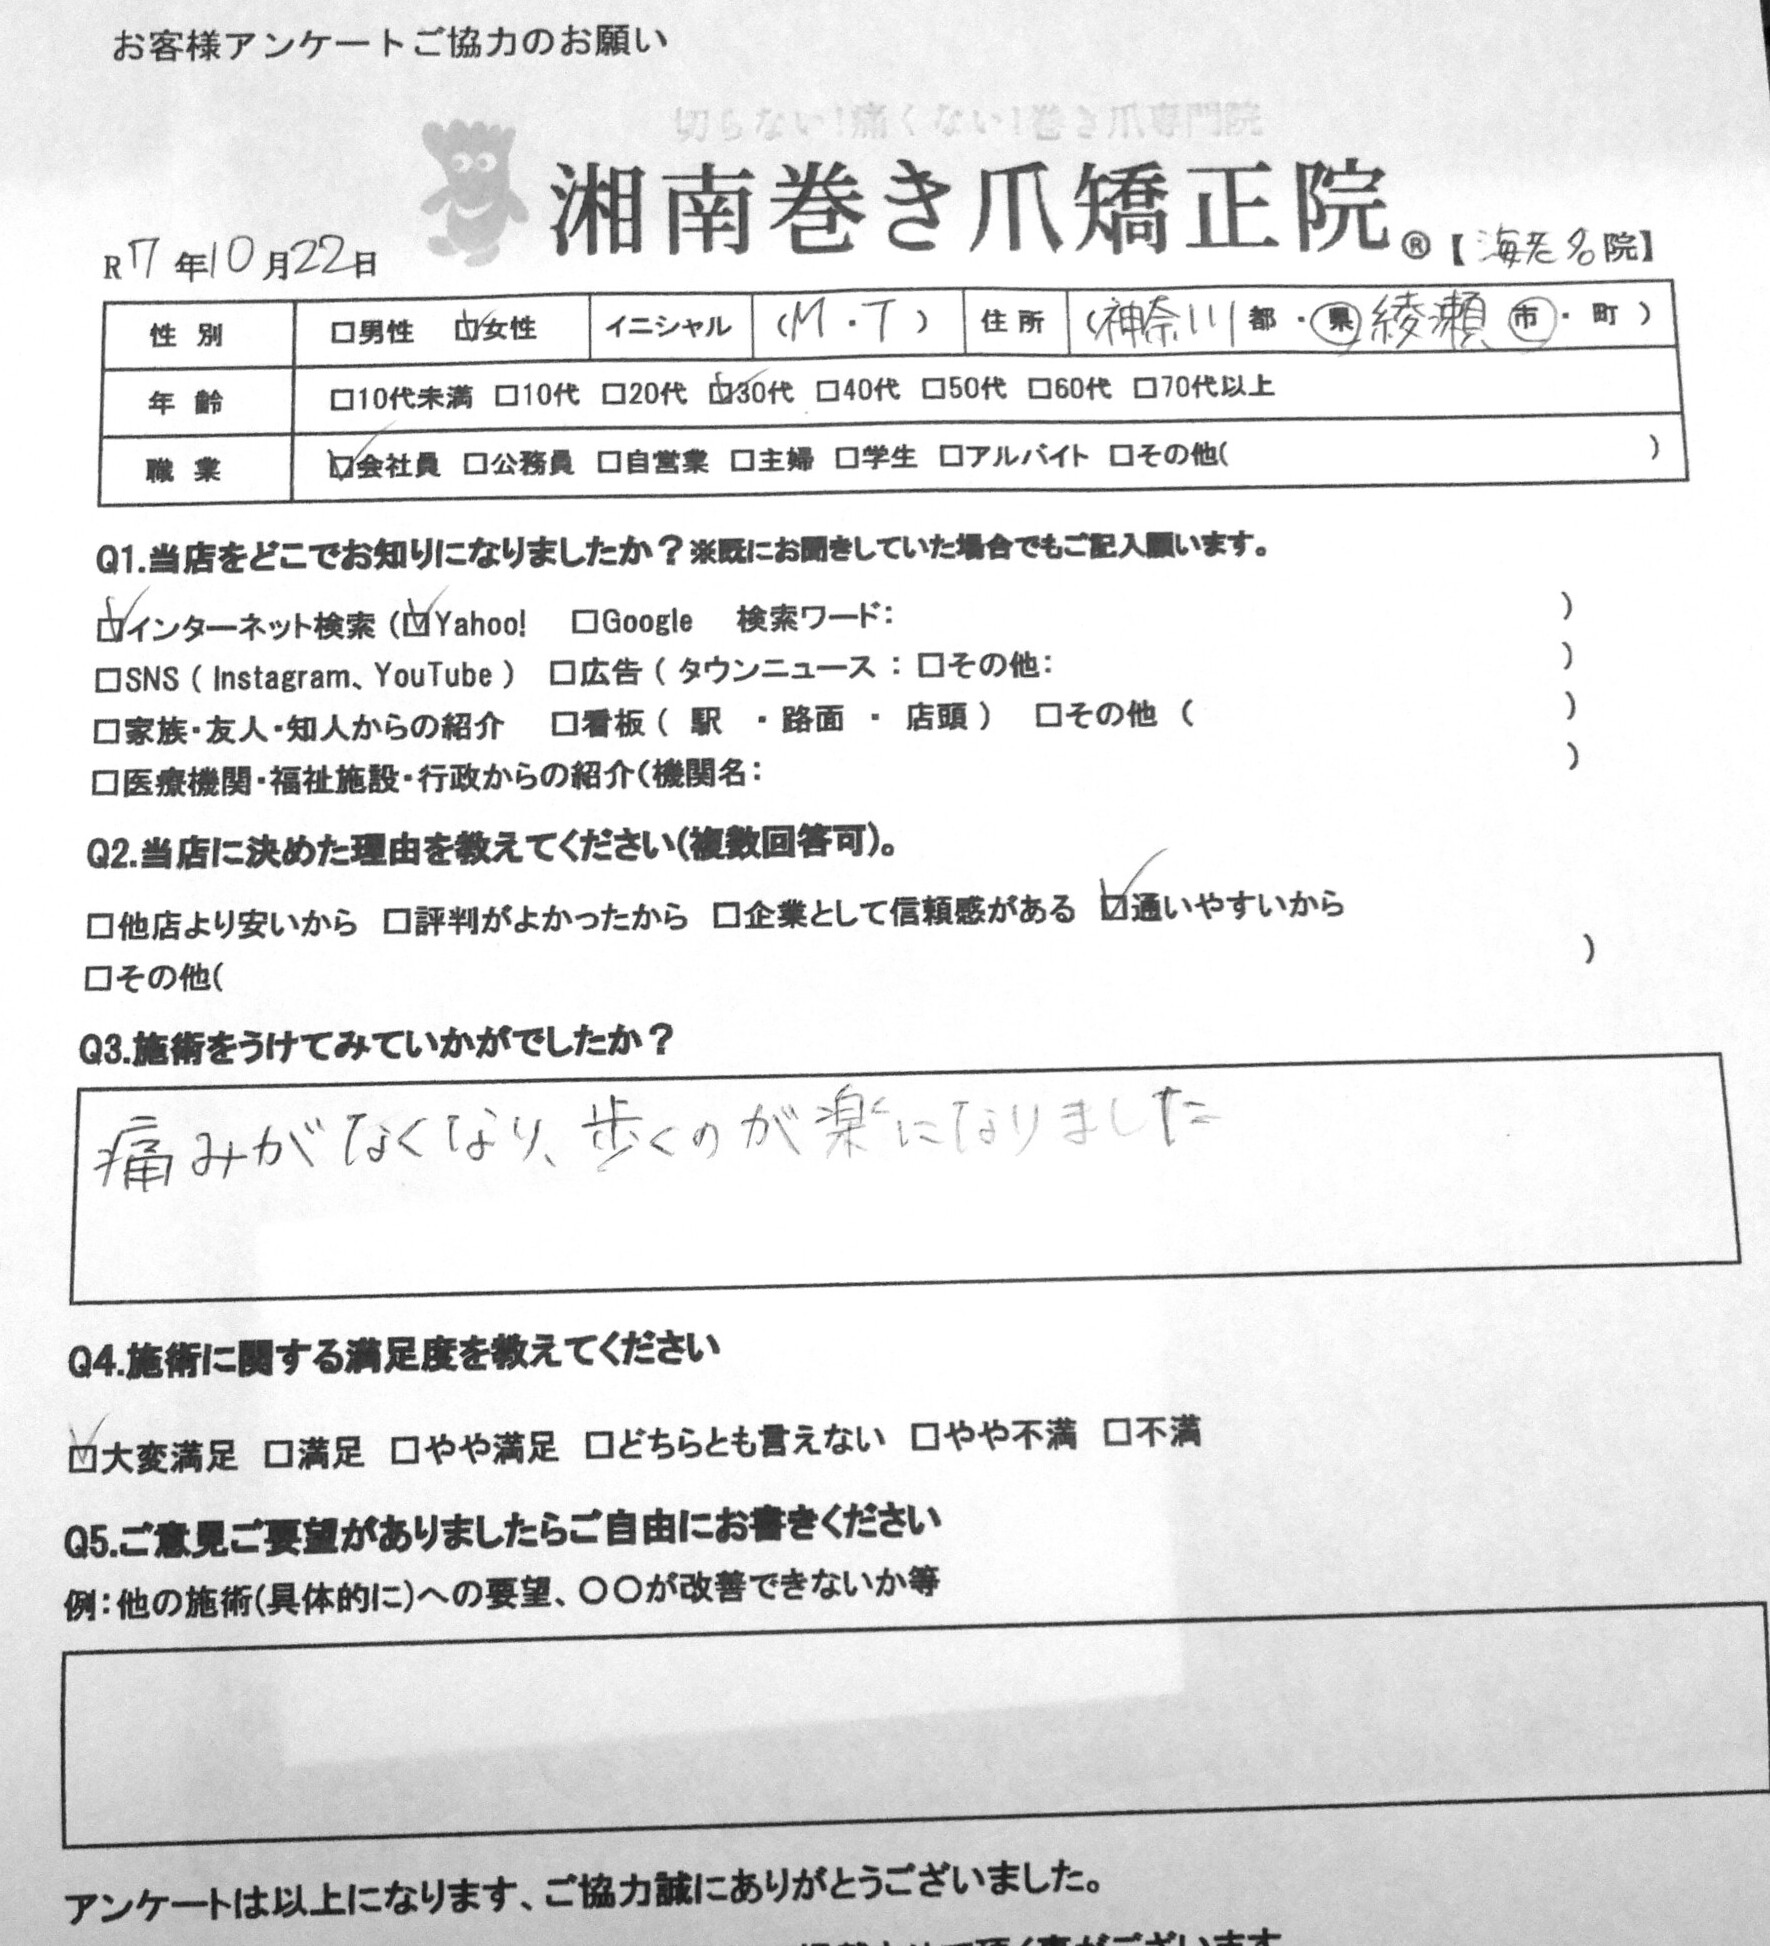 お客様アンケートご協力のお願い
切らない!痛くない!巻き爪専門院
湘南巻き爪矯正院®【海老名院】
R7年10月22日
性別 □男性 ☑女性 イニシャル (M・T) 住所 (神奈川都・県綾瀬市・町)
年齢 □10代未満 □10代 □20代 ☑30代 □40代 □50代 □60代 □70代以上
職業 ☑会社員 □公務員 □自営業 □主婦 □学生 □アルバイト □その他( )
Q1.当店をどこでお知りになりましたか?※既にお聞きしていた場合でもご記入願います。
☑インターネット検索 (☑Yahoo! □Google 検索ワード: )
□SNS ( Instagram、YouTube ) □広告 ( タウンニュース : □その他: )
□家族・友人・知人からの紹介 □看板 ( 駅 ・路面 ・ 店頭 ) □その他 ( )
□医療機関・福祉施設・行政からの紹介(機関名: )
Q2.当店に決めた理由を教えてください(複数回答可)。
□他店より安いから □評判がよかったから □企業として信頼感がある ☑通いやすいから
□その他( )
Q3.施術をうけてみていかがでしたか?
痛みがなくなり、歩くのが楽になりました
Q4.施術に関する満足度を教えてください
☑大変満足 □満足 □やや満足 □どちらとも言えない □やや不満 □不満
Q5.ご意見ご要望がありましたらご自由にお書きください
例:他の施術(具体的に)への要望、〇〇が改善できないか等
アンケートは以上になります、ご協力誠にありがとうございました。